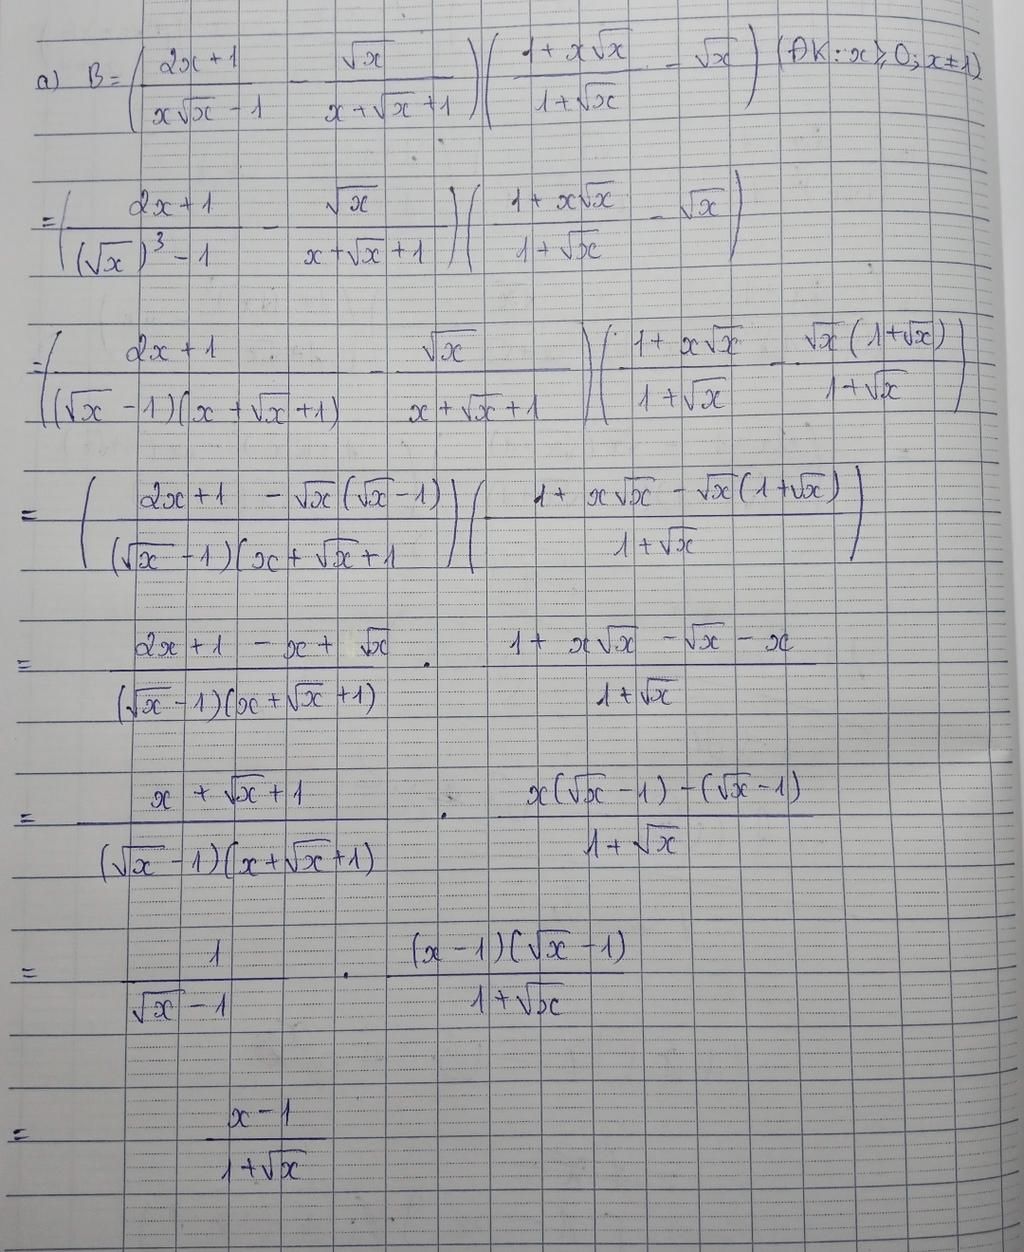 a) B = ( (2x + 1)/(x√x - 1) - √x/(x + √x + 1) ) ( (1 + x√x)/(1 + √x) - √x ) (ĐK: x ⩾ 0; x ≠ 1)
= ( (2x + 1)/((√x)³ - 1) - √x/(x + √x + 1) ) ( (1 + x√x)/(1 + √x) - √x )
= ( (2x + 1)/((√x - 1)(x + √x + 1)) - √x/(x + √x + 1) ) ( (1 + x√x)/(1 + √x) - √x(1 + √x)/(1 + √x) )
= ( (2x + 1 - √x(√x - 1))/((√x - 1)(x + √x + 1) ) ( (1 + x√x - √x(1 + √x))/(1 + √x) )
= (2x + 1 - x + √x)/((√x - 1)(x + √x + 1)) . (1 + x√x - √x - x)/(1 + √x)
= (x + √x + 1)/((√x - 1)(x + √x + 1)) . (x(√x - 1) - (√x - 1))/(1 + √x)
= 1/(√x - 1) . ((x - 1)(√x - 1))/(1 + √x)
= (x - 1)/(1 + √x)